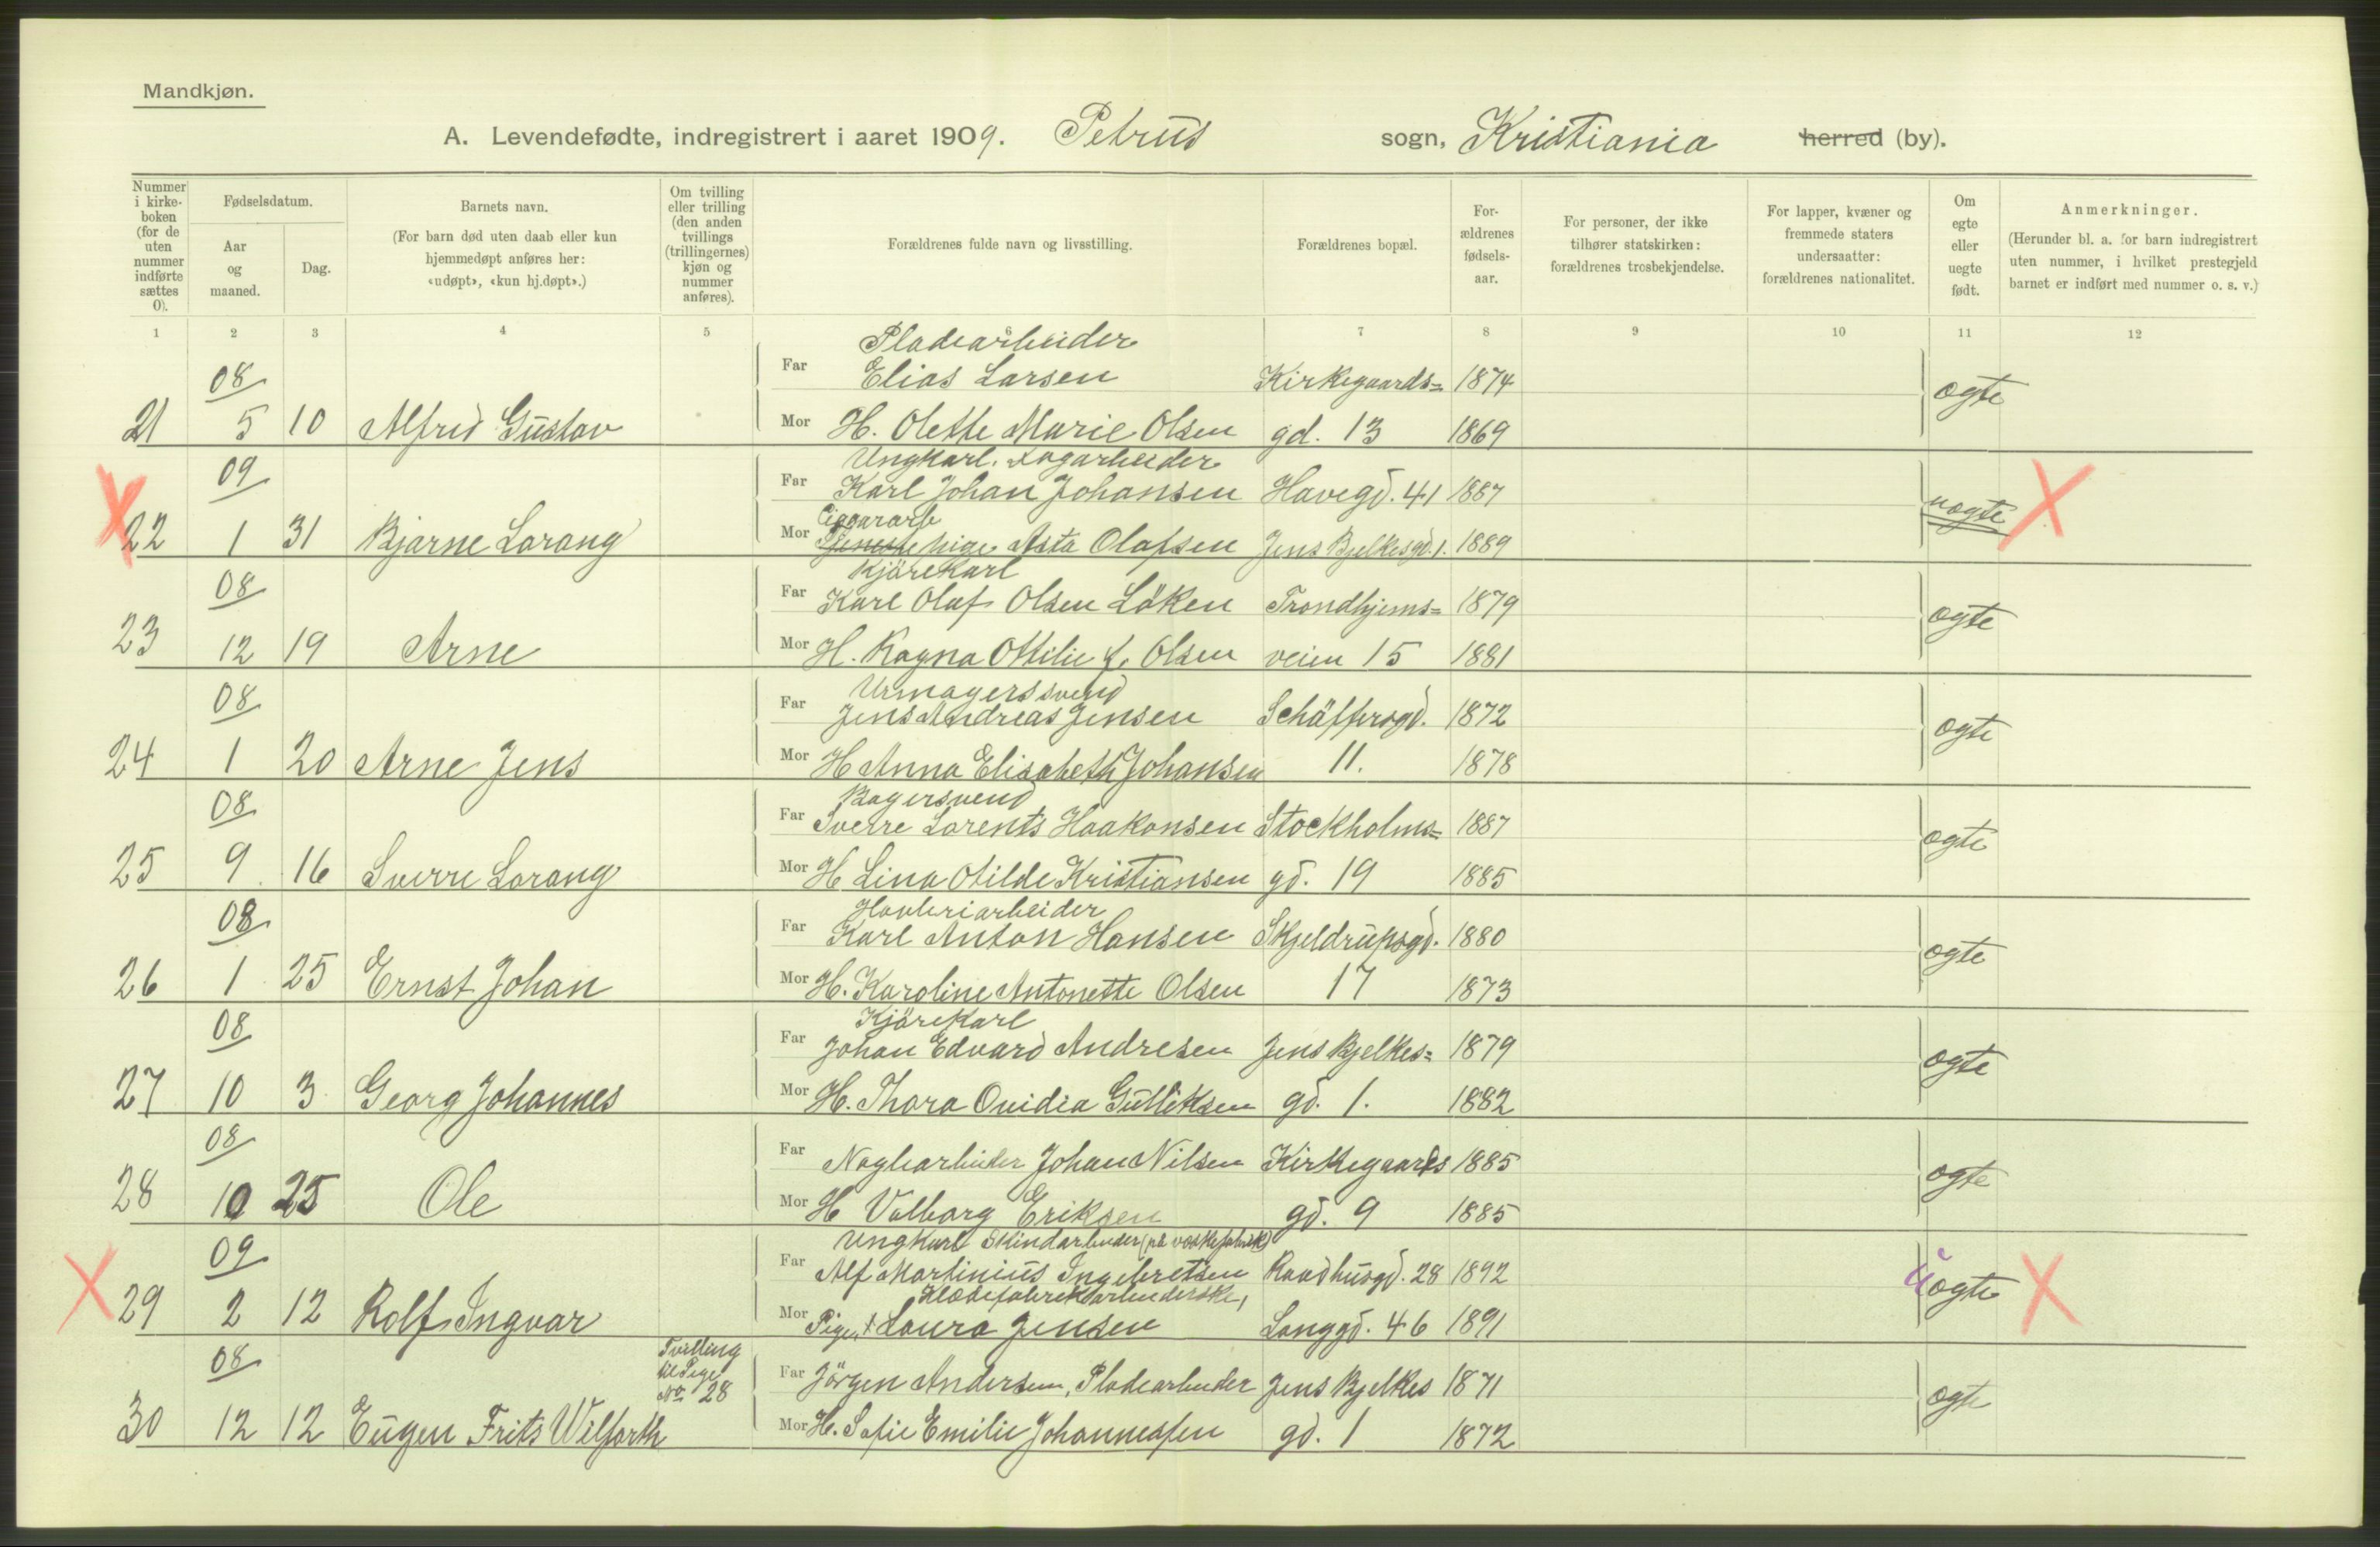 Mandkjøn.
A. Levendefødte, indregistrert i aaret 1909. Petrus sogn, Kristiania herred (by).
Nummer i kirke- boken (for de uten nummer indførte sættes 0).
Fødselsdatum.
Aar og maaned.
Dag.
Barnets navn.
(For barn død uten daab eller kun hjemmedøpt anføres her: «udøpt», «kun hj.døpt».)
Om tvilling eller trilling (den anden tvillings (trillingernes) kjøn og nummer anføres).
Forældrenes fulde navn og livsstilling.
Forældrenes bopæl.
For- ældrenes fødsels- aar.
For personer, der ikke tilhører statskirken: forældrenes trosbekjendelse.
For lapper, kvæner og fremmede staters undersaatter: forældrenes nationalitet.
Om egte eller uegte født.
Anmerkninger.
(Herunder bl. a. for barn indregistrert uten nummer, i hvilket prestegjeld barnet er indført med nummer o. s. v.)
1 2 3 4 5 7 8 9 10 11 12
Pladearbeider
08 Far Elias Larsen Kirkegaards= 1874 ægte
21 5 10 Alfred Gustav Mor H. Olette Marie Olsen gd. 13 1869
Ungkarl.
09 Far Karl Johan Johansen Havegd. 41 1887 uægte X
Cigararb
X 22 1 31 Bjarne Lorang Mor Tjeneste pige Asta Olafsen Jens Bjelkesgd. 1. 1889
Kjørekarl
08 Far Karl Olaf Olsen Löken Trondhjems= 1879 ægte
23 12 19 Arne Mor H. Ragna Ottilie f. Olsen veien 15 1881
Urmagerssvend
08 Far Jens Andreas Jensen Schäffersgd. 1872 ægte
24 1 20 Arne Jens Mor H Anna Elisabeth Johansen 11. 1878
Bagersvend
08 Far Sverre Lorents Haakonsen Stockholms= 1887 ægte
25 9 16 Sverre Lorang Mor H Lina Otilde Kristiansen gd. 19 1885
Havneriarbeider
08 Far Karl Anton Hansen Skjeldrupsgd. 1880 ægte
26 1 25 Ernst Johan Mor H. Karoline Antonette Olsen 17 1873
Kjörekarl
08 Far Johan Edvard Andresen Jens Bjelkes= 1879 ægte
27 10 3 Georg Johannes Mor H. Thora Ovidia Gulliksen gd. 1. 1882
08 Far Naglearbeider Johan Nilsen Kirkegaards 1885 ægte
28 10 25 Ole Mor H Valborg Eriksen gd. 9 1885
Ungkarl Skindarbeider (på væskefabrik)
09 Far Alf Martinius Ingebretsen Raadhusgd. 28 1892 uægte X
X 29 2 12 Rolf Ingvar Mor Pige, Laura Jensen Langgd. 46 1891
Tvilling til Pige No 28
08 Far Jörgen Andersen, Pladearbeider Jens Bjelkes 1871 ægte
30 12 12 Eugen Frits Wilforth Mor H. Sofie Emilie Johannessen gd. 1 1872